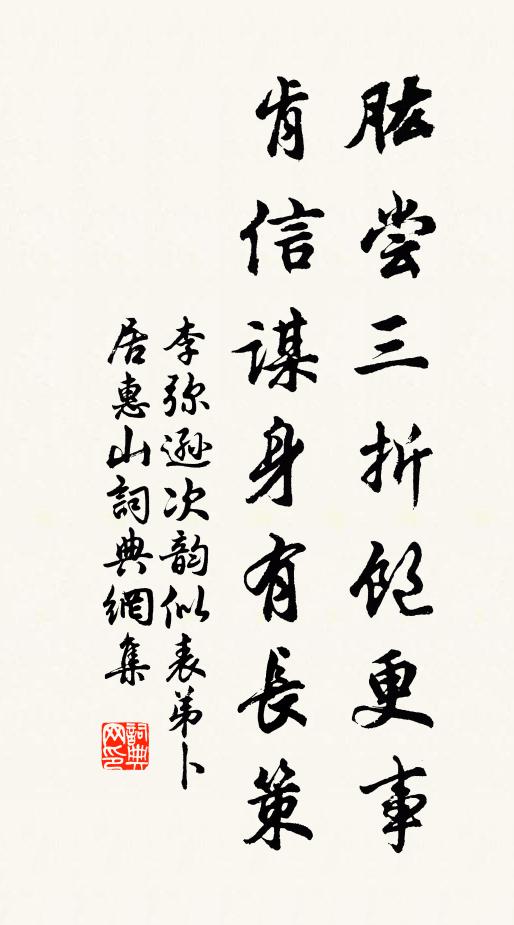 肱尝三折飽更事
肯信谋身有長策
李弥遜次韵似表弟卜
居惠山詞典網集
詞典
网印